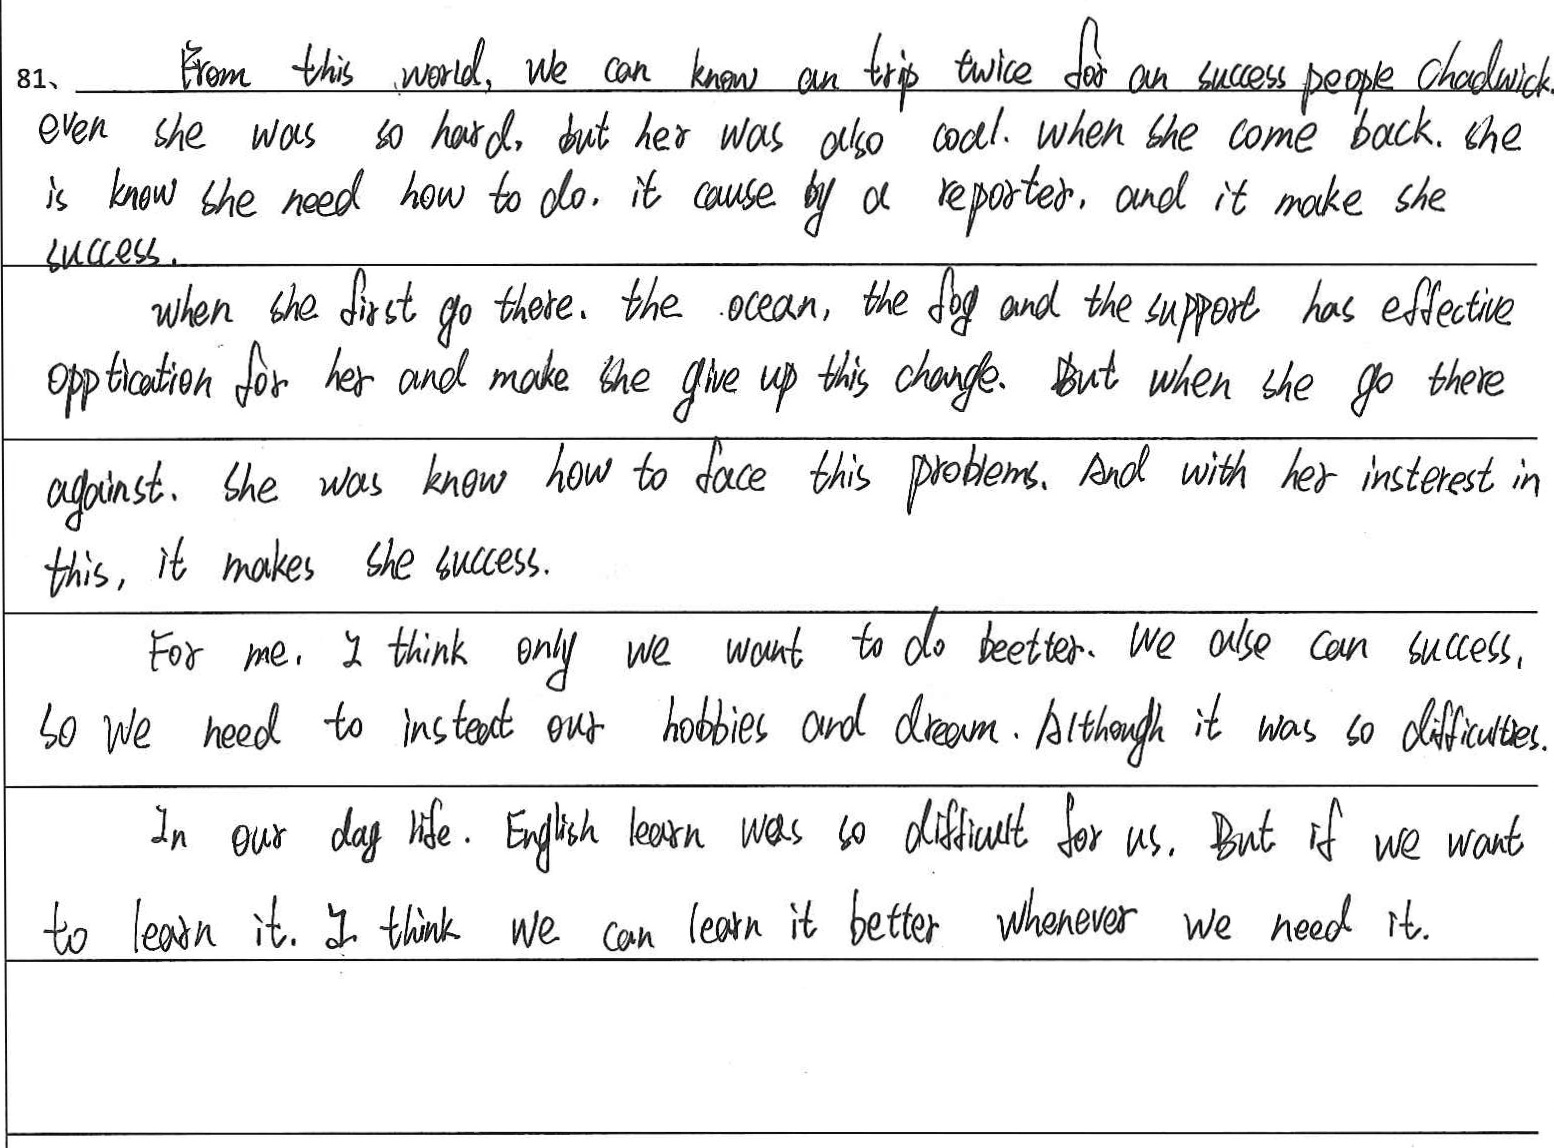 81、 From this world, we can know an trip twice for an success people Chadwick.
even she was so hard, but her was also cool. when she come back. she
is know she need how to do. it cause by a reporter. and it make she
success.
when she first go there. the ocean, the fog and the support has effective
opptication for her and make she give up this change. But when she go there
against. she was know how to face this problems. And with her insterest in
this, it makes she success.
For me. I think only we want to do beetter. We alse can success,
so we need to insteat our hobbies and dream. Although it was so difficulties.
In our day life. English learn was so difficult for us. But if we want
to learn it. I think we can learn it better whenever we need it.